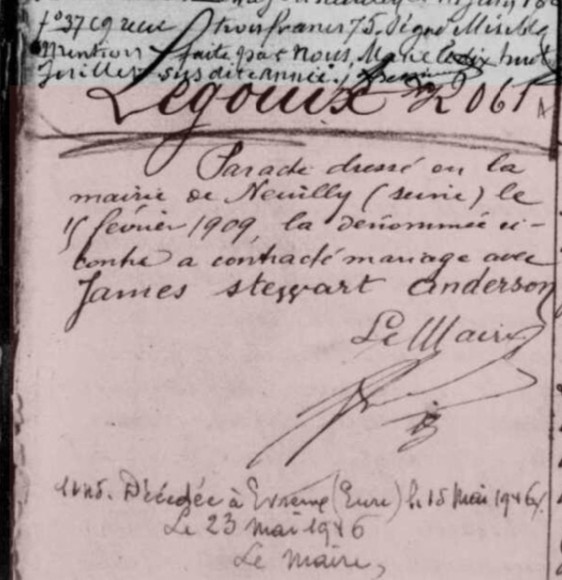 f° 37 Cq reçu trois francs 75, signé
Mention faite par nous, Maire le dix huit
Juillet susdite année,
Legouix 2061
Par acte dressé en la
mairie de Neuilly (seine) le
15 février 1909, la dénommée ci-
contre a contracté mariage avec
James steward anderson
Le Maire
Décédée à (Eure) le 15 Mai 1946.
Le 23 mai 1946
Le maire,